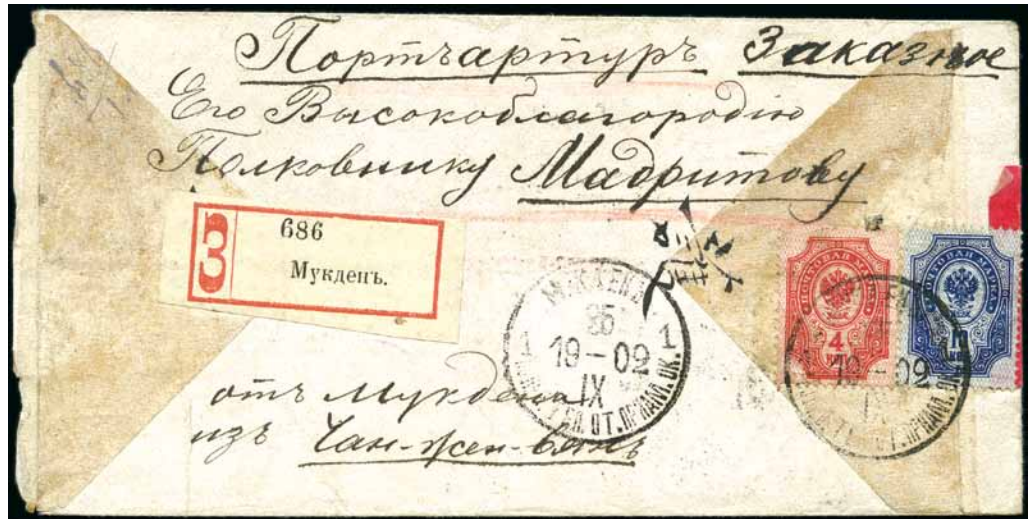 Портъартуръ Заказное
Его Высокоблагородію
Полковнику Мадритову
З
686
Мукденъ.
МУКДЕНЪ
25
1 19-02 1
IX
ОТ. ПРИАМ. ОК.
ПОЧТОВАЯ МАРКА
4
ПОЧТОВАЯ МАРКА
19-02
IX
ОТ. ПРИАМ. ОК.
отъ Мукдена
изъ Чан-жен-